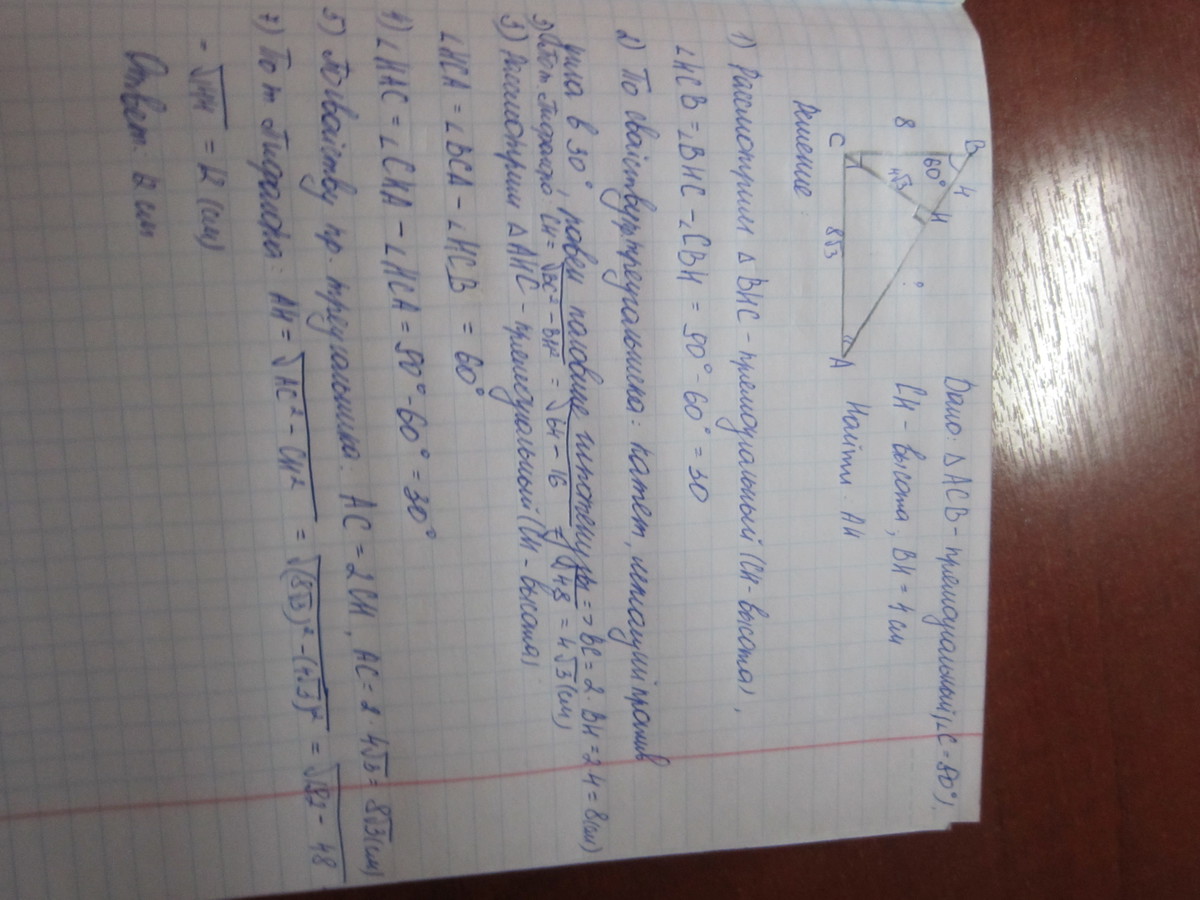 B
4
60°
H
8
4√3
C
8√3
A
Дано: △ACB - прямоугольный (∠C = 90°),
CH - высота, BH = 4 см
Найти: AH
Решение:
1) Рассмотрим △BHC - прямоугольный (CH - высота),
∠HCB = ∠BHC - ∠CBH = 90° - 60° = 30
2) По свойству пр треугольника: катет, лежащий против
угла в 30°, равен половине гипотенузы => BC = 2 · BH = 2 4 = 8 (см)
3) Пифагора: CH = √BC² - BH² = √64 - 16 = √48 = 4√3 (см)
3) Рассмотрим △AHC - прямоугольный (CH - высота)
∠HCA = ∠BCA - ∠HCB = 60°
4) ∠HAC = ∠CHA - ∠HCA = 90° - 60° = 30°
5) По свойству пр. треугольника: AC = 2CH, AC = 2 · 4√3 = 8√3 (см)
7) По т Пифагора: AH = √AC² - CH² = √(8√3)² - (4√3)² = √192 - 48
= √144 = 12 (см)
Ответ: 12 см